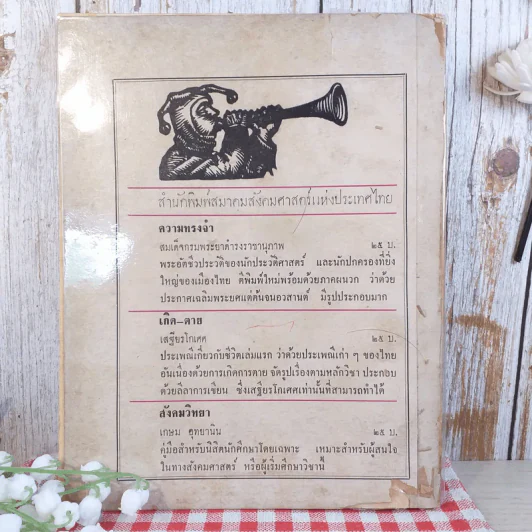 สำนักพิมพ์สมาคมสังคมศาสตร์แห่งประเทศไทย
ความทรงจำ
สมเด็จกรมพระยาดำรงราชานุภาพ ๒๕ บ.
พระอัตชีวประวัติของนักประวัติศาสตร์ และนักปกครองที่ยิ่ง
ใหญ่ของเมืองไทย ตีพิมพ์ใหม่พร้อมด้วยภาคผนวก ว่าด้วย
ประกาศเฉลิมพระยศแต่ต้นจนอวสานต์ มีรูปประกอบมาก
เกิด-ตาย
เสฐียรโกเศศ ๒๕ บ.
ประเพณีเกี่ยวกับชีวิตเล่มแรก ว่าด้วยประเพณีเก่า ๆ ของไทย
อันเนื่องด้วยการเกิดการตาย จัดรูปเรื่องตามหลักวิชา ประกอบ
ด้วยลีลาการเขียน ซึ่งเสฐียรโกเศศเท่านั้นที่สามารถทำได้
สังคมวิทยา
เกษม อุทยานิน ๒๕ บ.
คู่มือสำหรับนิสิตนักศึกษาโดยเฉพาะ เหมาะสำหรับผู้สนใจ
ในทางสังคมศาสตร์ หรือผู้เริ่มศึกษาวิชานี้